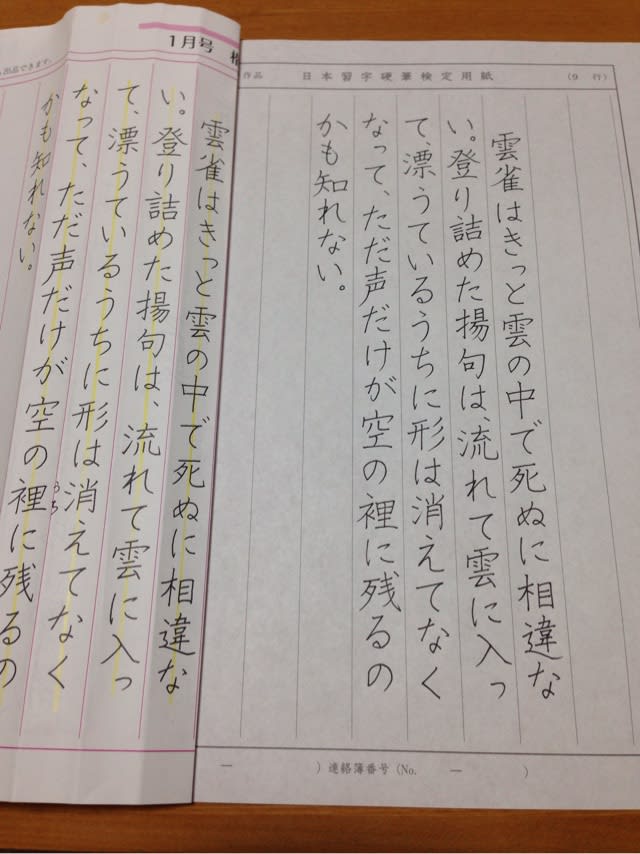 作品
日本習字硬筆検定用紙
(9 行)
雲雀はきっと雲の中で死ぬに相違な
い。登り詰めた揚句は、流れて雲に入っ
て、漂うているうちに形は消えてなく
なって、ただ声だけが空の裡に残るの
かも知れない。
― )連絡簿番号(No. ― )
1月号
出品できます。
雲雀はきっと雲の中で死ぬに相違な
い。登り詰めた揚句は、流れて雲に入っ
て、漂うているうちに形は消えてなく
なって、ただ声だけが空の裡に残るの
うち
かも知れない。